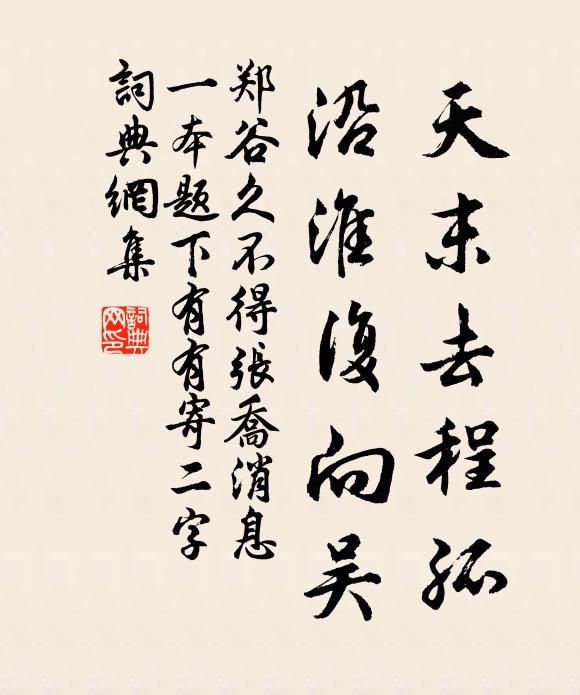 天末去程孤
沿淮復向吴
郑谷久不得張喬消息
一本题下有有寄二字
詞典網集
詞典网印